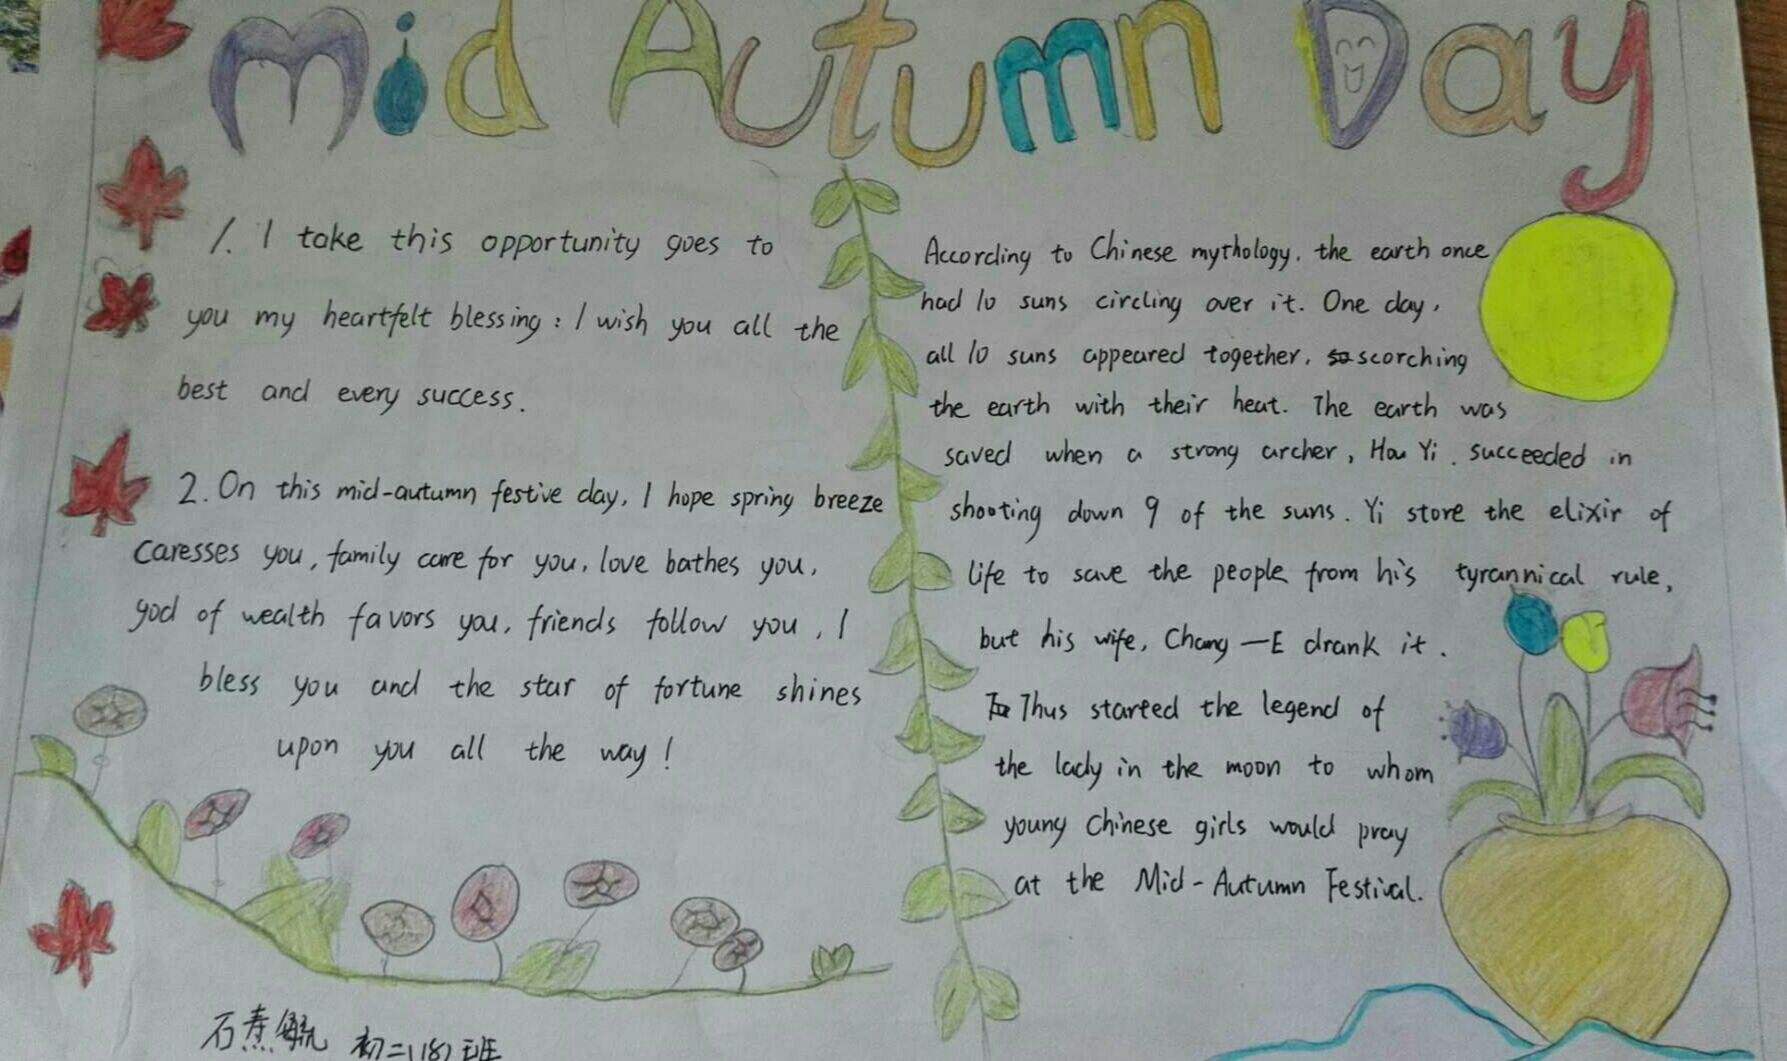 Mid Autumn Day
1. I take this opportunity goes to
you my heartfelt blessing: I wish you all the
best and every success.
2. On this mid-autumn festive day, I hope spring breeze
caresses you, family care for you, love bathes you,
god of wealth favors you, friends follow you, I
bless you and the star of fortune shines
upon you all the way!
According to Chinese mythology, the earth once
had 10 suns circling over it. One day,
all 10 suns appeared together, scorching
the earth with their heat. The earth was
saved when a strong archer, Hou Yi. succeeded in
shooting down 9 of the suns. Yi store the elixir of
life to save the people from his tyrannical rule,
but his wife, Chang-E drank it.
Thus started the legend of
the lady in the moon to whom
young Chinese girls would pray
at the Mid-Autumn Festival.
石 毓 初二(18)班